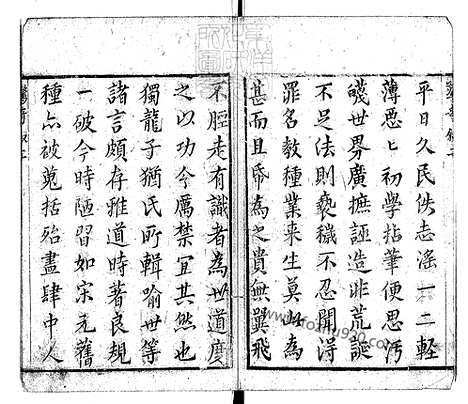 平日久民佚志滛一二輕
薄惡亾初學拈筆便思汚
衊世界廣摭誣造非荒誕
不足法則褻穢不忍聞得
罪名教種業來生莫此為
甚而且㫺為之貴無翼飛
不脛走有識者為世道慮
之以功令厲禁宜其然也
獨龍子猶氏所輯喻世等
諸言頗存雅道時著良規
一破今時陋習如宋元舊
種亦被蒐括殆盡肆中人